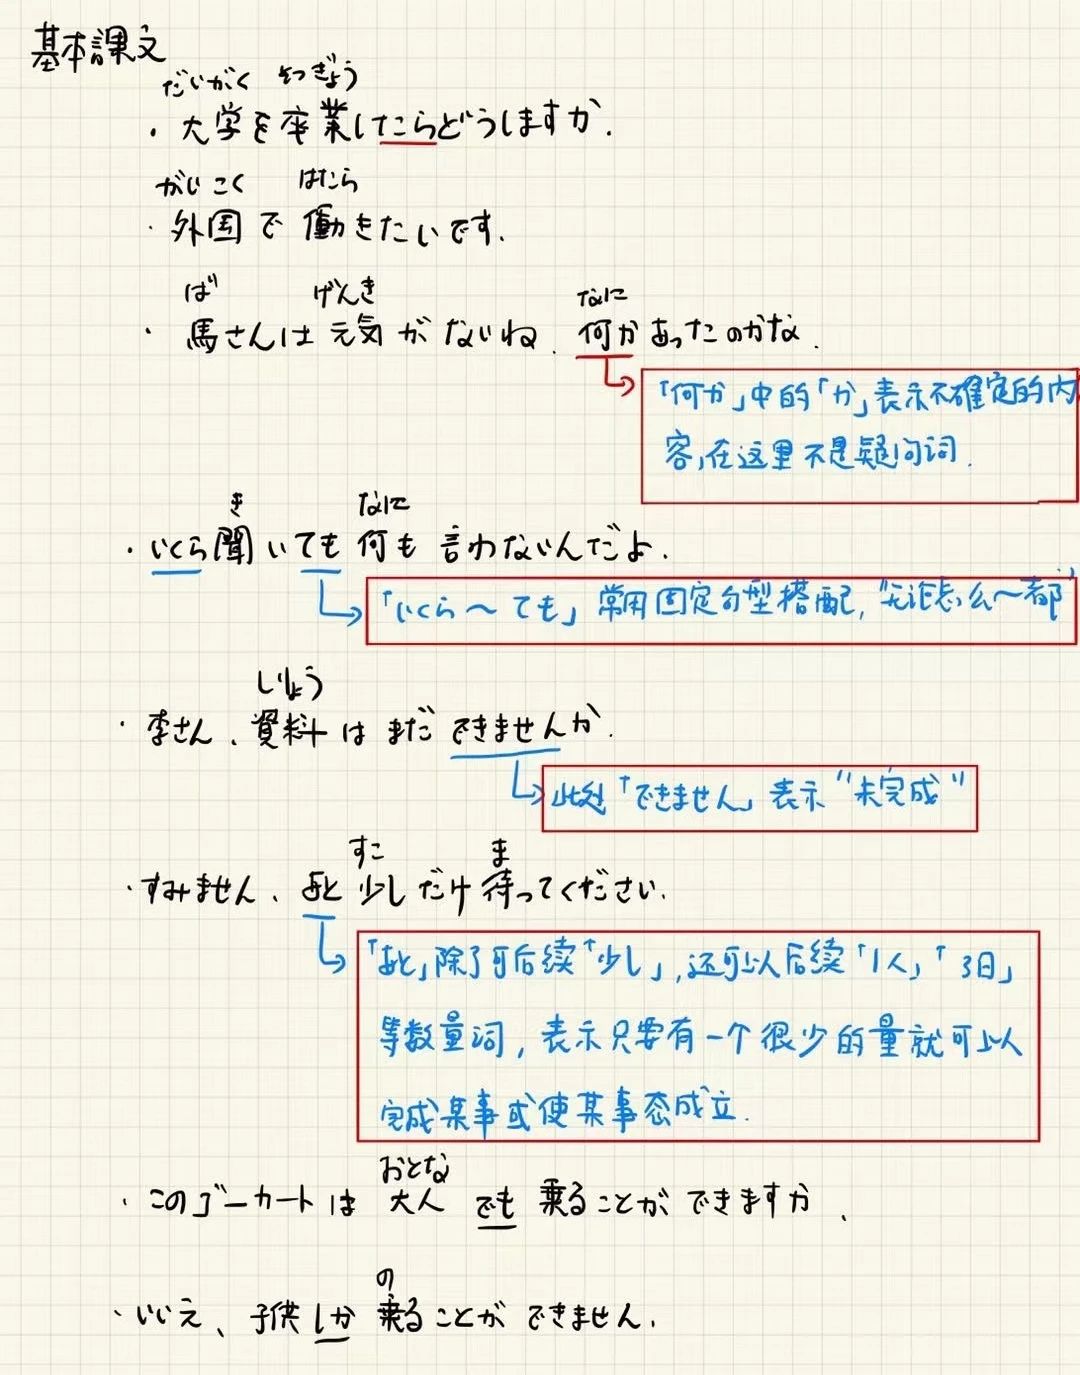 基本課文
だいがく そつぎょう
・大学を卒業したらどうしますか.
がいこく はたら
・外国で働きたいです.
ば げんき なに
・馬さんは元気がないね.何かあったのかな.
「何か」中的「か」表示不確定的内
容,在这里不是疑问词.
き なに
・いくら聞いても何も言わないんだよ.
「いくら～ても」常用固定句型搭配,“无论怎么～都”
しりょう
・李さん、資料はまだできませんか.
此处「できません」表示“未完成”
すこ ま
・すみません、あと少しだけ待ってください.
「あと」除了可后续「少し」,还可以后续「1人」「3日」
等数量词,表示只要有一个很少的量就可以
完成某事或使某事态成立.
おとな
・このゴーカートは大人でも乗ることができますか.
の
・いいえ、子供しか乗ることができません.